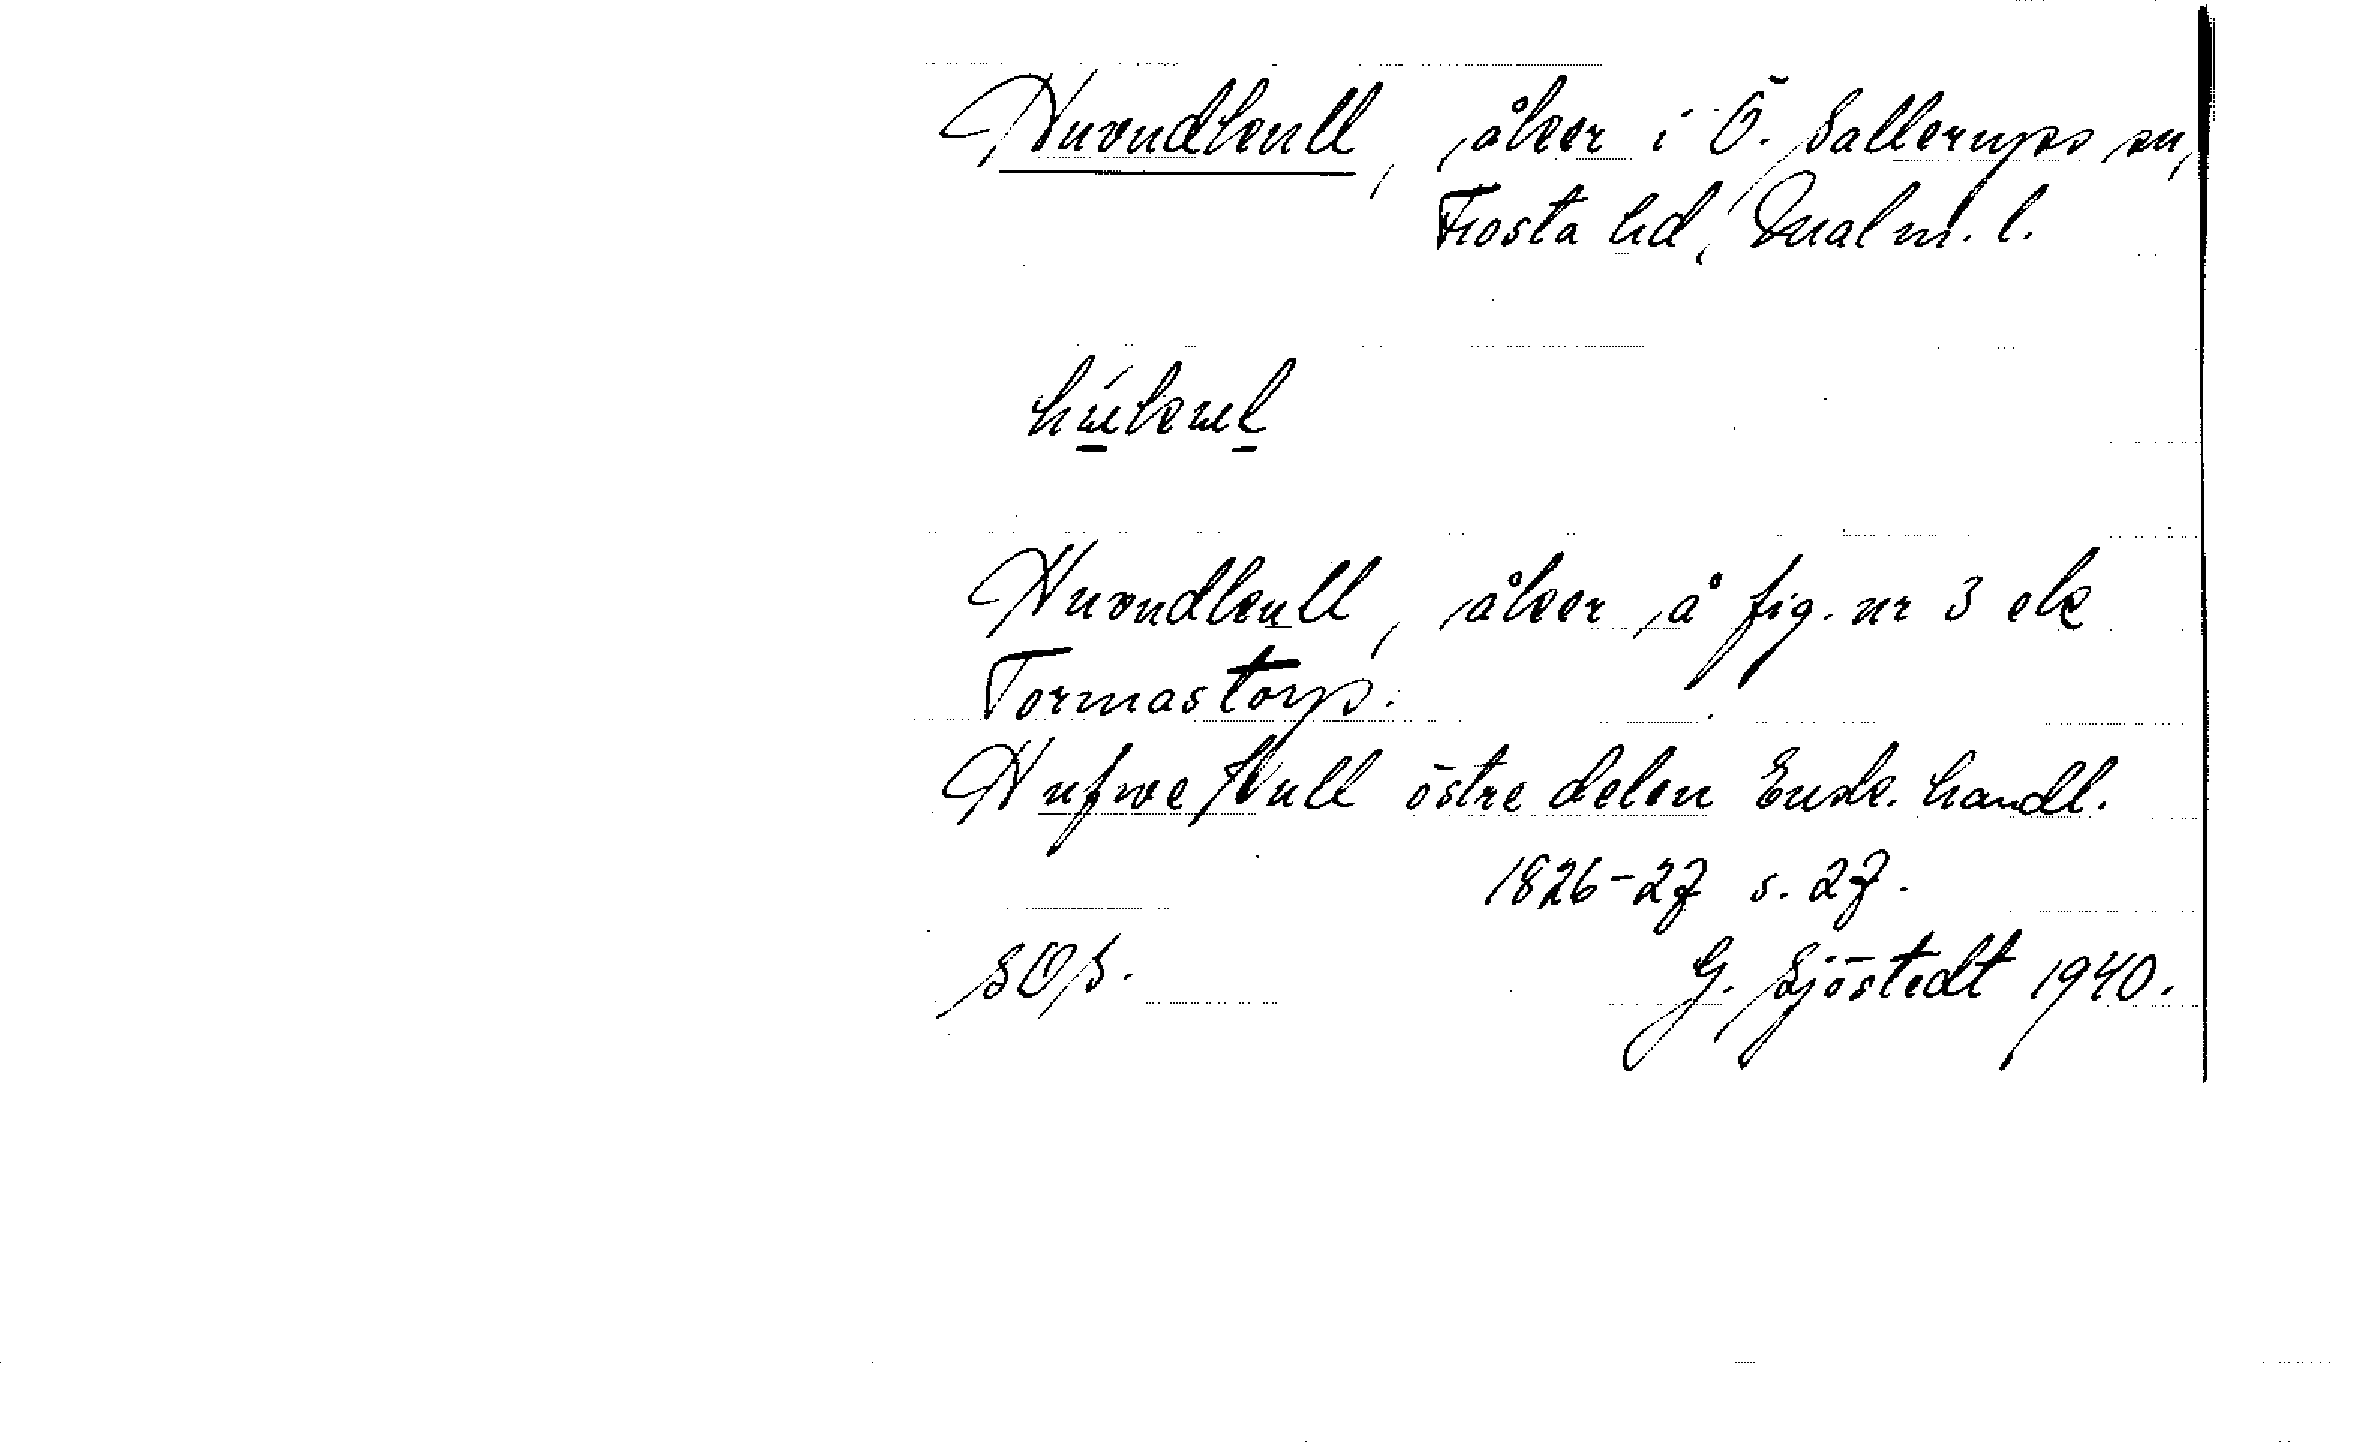 Huvudkull, åker i Ö. Sallerups sn,
Frosta hd, Malm. l.
húkul
Huvudkull, åker å fig. nr 3 ek
Tormastorp.
Hufwe Kull östre delen Ensk. handl.
1826-27 s. 27.
SOS.
G. Sjöstedt 1940.